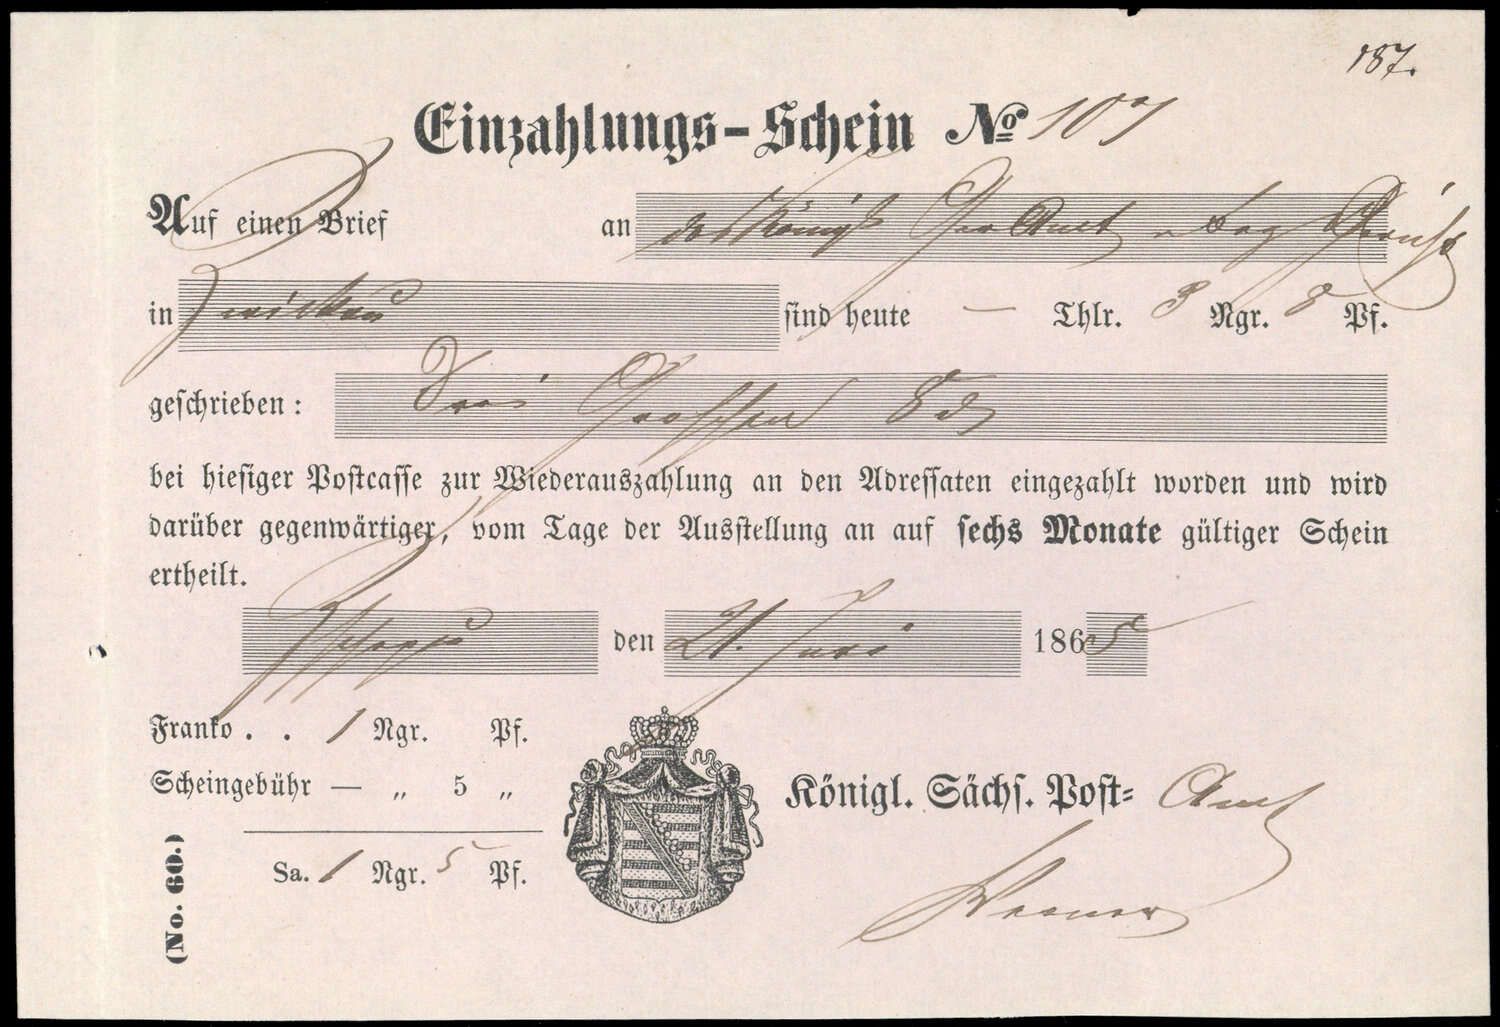 187.
Einzahlungs-Schein No 107
Auf einen Brief an das Königl. Ger Amt Bez Gericht
in Zwickau sind heute — Thlr. 3 Ngr. 8 Pf.
geschrieben: Drei Groschen 8 d
bei hiesiger Postcasse zur Wiederauszahlung an den Adressaten eingezahlt worden und wird
darüber gegenwärtiger, vom Tage der Ausstellung an auf sechs Monate gültiger Schein
ertheilt.
Zschopau den 21. Juni 1865
Franko . . 1 Ngr. Pf.
Scheingebühr — „ 5 „
Königl. Sächs. Post-Amt
Sa. 1 Ngr. 5 Pf.
Werner
(No. 60.)